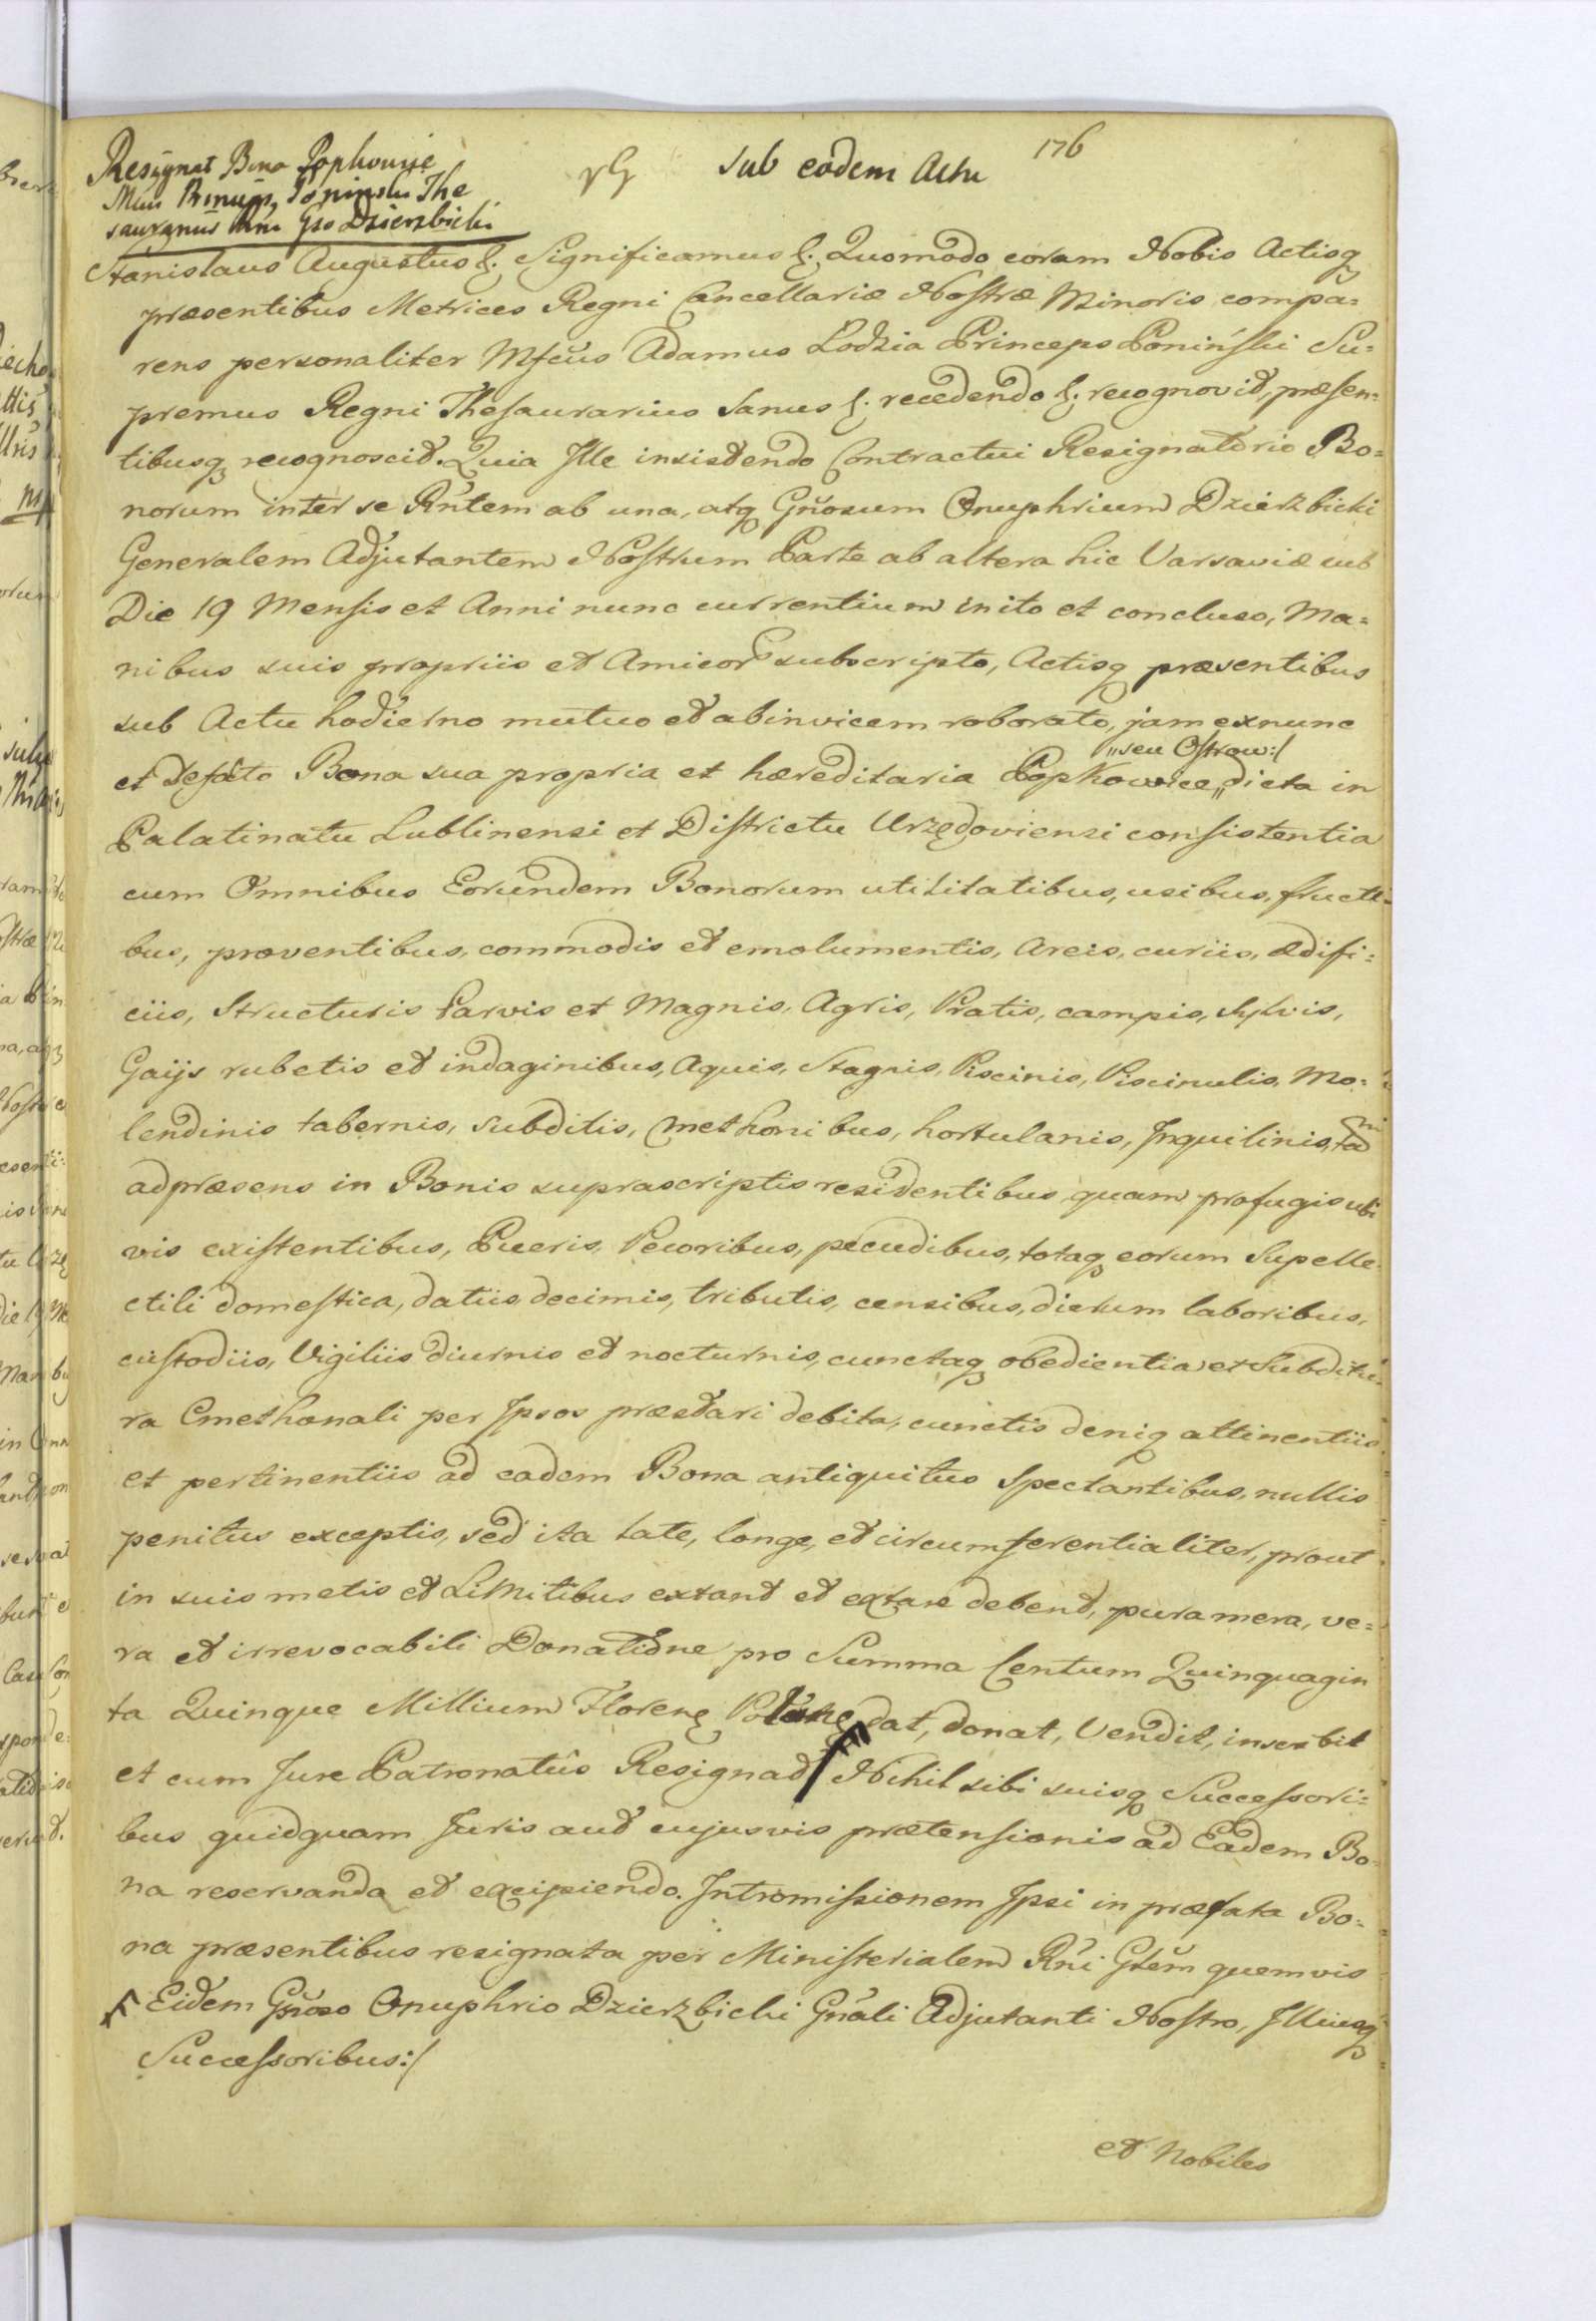 176
Resignat Bona Popkowice
Mcus Princeps Poninski The
saurarius Rni Gso Dzierzbicki
sub eodem Actu
Stanislaus Augustus &. Significamus &. Quomodo coram Nobis Actisq
præsentibus Metrices Regni Cancellariæ Nostræ Minoris compa=
rens personaliter Mfcus Adamus Łodzia Princeps Poniński Su=
premus Regni Thesaurarius Sanus &. recedendo &. recognovit, præsen=
tibusq recognoscit. Quia Ille insistendo Contractui Resignatorio Bo=
norum inter se Rntem ab una, atq Gnosum Onuphrium Dzierzbicki
Generalem Adjutantem Nostrum Parte ab altera hic Varsaviæ sub
Die 19 Mensis et Anni nunc currentium inito et concluso, Ma=
nibus suis propriis et Amicor subscripto, Actisq præsentibus
sub Actu hodierno mutuo et abinvicem roborato, jam exnunc
„seu Ostrow:/
et defacto Bona sua propria et hæreditaria Popkowice „ dicta in
Palatinatu Lublinensi et Districtu Urzędoviensi consistentia
cum Omnibus Eorundem Bonorum utilitatibus, usibus, fructi=
bus, proventibus, commodis et emolumentis, areis, curiis, ædifi=
ciis, Structuris Parvis et Magnis, Agris, Pratis, campis, Sylvis,
Gaijs rubetis et indaginibus, Aquis, Stagnis, Piscinis, Piscinulis, Mo=
lendinis tabernis, subditis, Cmethonibus, hortulanis, Inquilinis,
adpræsens in Bonis suprascriptis residentibus quam profugis ubi
vis existentibus, Pueris, Pecoribus, pecudibus, totaq eorum Supelle
ctili domestica, datiis decimis, tributis, censibus, dierum laboribus,
custodiis, Vigiliis diurnis et nocturnis, cunctaq obedientia et Subditu=
ra Cmethonali per Ipsos præstari debita, cunctis deniq attinentiis
et pertinentiis ad eadem Bona antiquitus Spectantibus, nullis
penitus exceptis, sed ita late, longe, et circumferentialiter, prout
in suis metis et Limitibus extant et extare debent, pura mera, ve=
ra et irrevocabili Donatione pro Summa Centum Quinquagin
ta Quinque Millium Floren Polon dat, donat, Vendit, inscribit
et cum Jure Patronatus Resignat Nihil sibi suisq Successori=
bus quidquam Juris aut cujusvis prætensionis ad Eadem Bo=
na reservando et excipiendo. Intromissionem Ipsi in præfata Bo=
na præsentibus resignata per Ministerialem Rni Gtem quemvis
Eidem Gnoso Onuphrio Dzierzbicki Gnali Adjutanti Nostro, Illiusq
Successoribus:/
et Nobiles